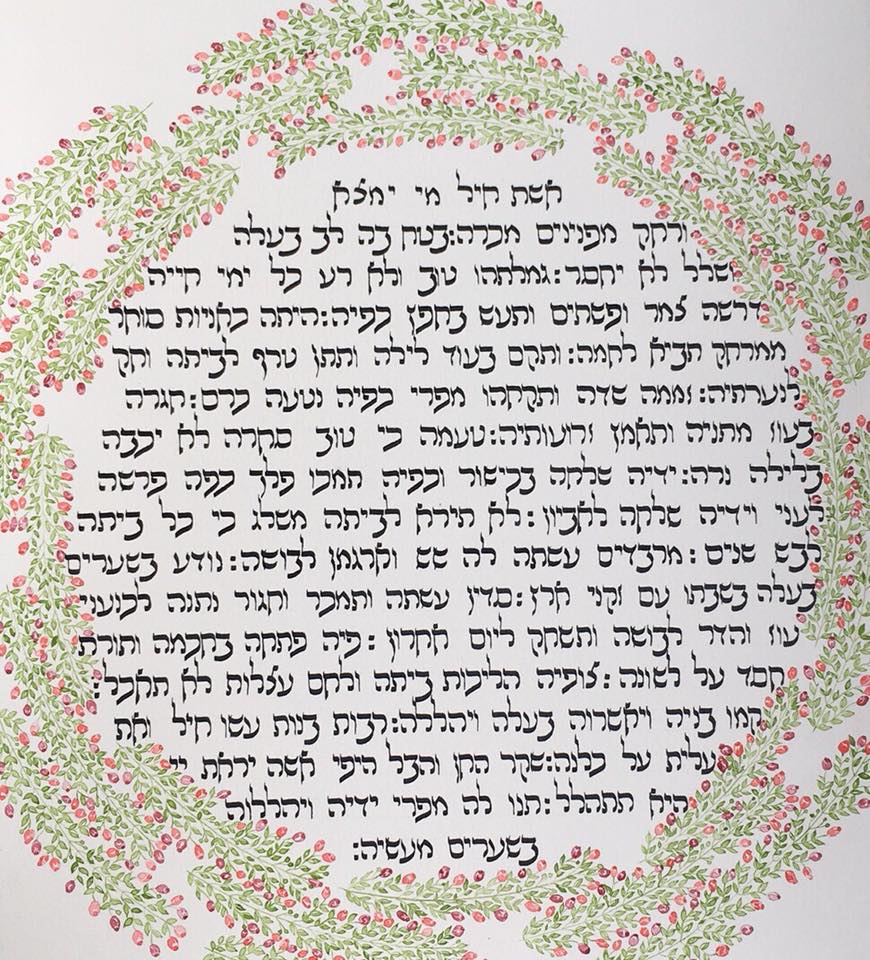 אשת חיל מי ימצא
ורחק מפנינים מכרה:בטח בה לב בעלה
ושלל לא יחסר:גמלתהו טוב ולא רע כל ימי חייה
דרשה צמר ופשתים ותעש בחפץ כפיה:היתה כאניות סוחר
ממרחק תביא לחמה:ותקם בעוד לילה ותתן טרף לביתה וחק
לנערתיה:זממה שדה ותקחהו מפרי כפיה נטעה כרם:חגרה
בעוז מתניה ותאמץ זרועותיה:טעמה כי טוב סחרה לא יכבה
בלילה נרה:ידיה שלחה בכישור וכפיה תמכו פלך כפה פרשה
לעני וידיה שלחה לאביון:לא תירא לביתה משלג כי כל ביתה
לבש שנים:מרבדים עשתה לה שש וארגמן לבושה:נודע בשערים
בעלה בשבתו עם זקני ארץ:סדין עשתה ותמכר וחגור נתנה לכנעני
עוז והדר לבושה ותשחק ליום אחרון:פיה פתחה בחכמה ותורת
חסד על לשונה:צופיה הליכות ביתה ולחם עצלות לא תאכל:
קמו בניה ויאשרוה בעלה ויהללה:רבות בנות עשו חיל ואת
עלית על כלנה:שקר החן והבל היפי אשה יראת יי
היא תתהלל:תנו לה מפרי ידיה ויהללוה
בשערים מעשיה: